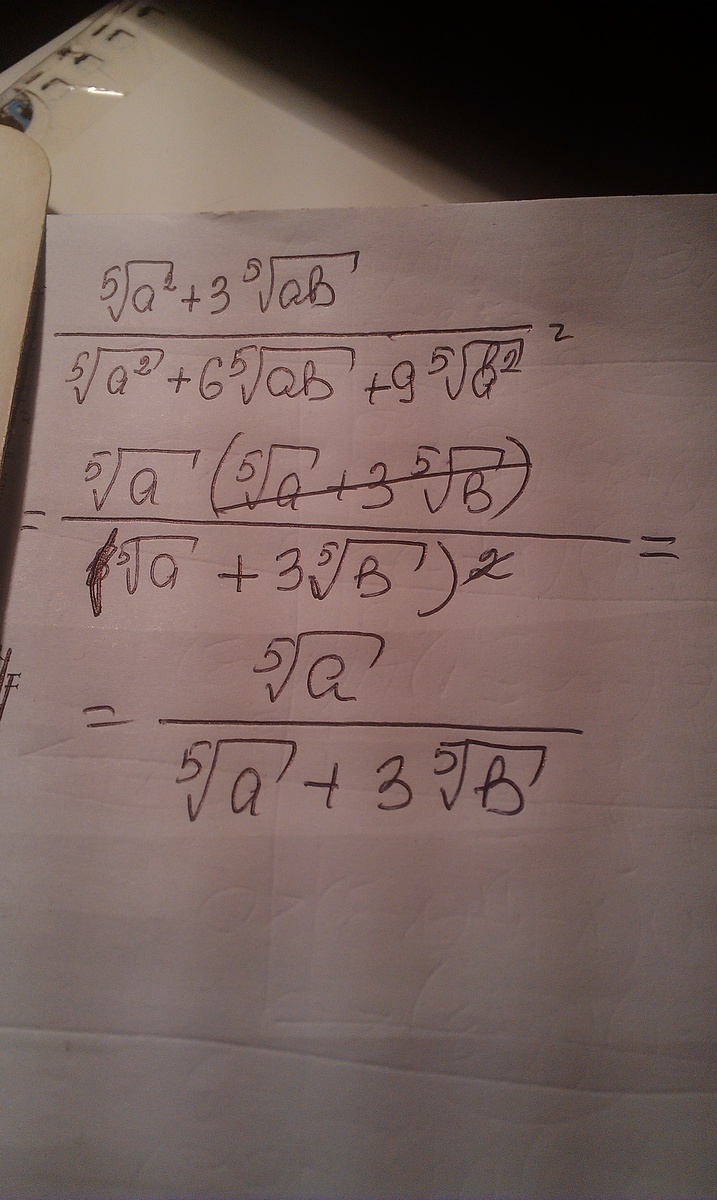 ⁵√a² + 3 ⁵√ab
⁵√a² + 6 ⁵√ab + 9 ⁵√b² =
= ⁵√a (⁵√a + 3 ⁵√b)
(⁵√a + 3 ⁵√b)² =
= ⁵√a
⁵√a + 3 ⁵√b